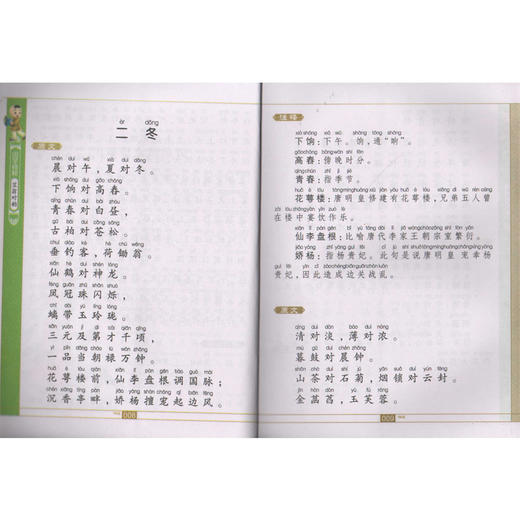 èr dōng
二 冬
原文
chén duì wǔ xià duì dōng
晨对午，夏对冬。
xià shǎng duì gāo chōng
下饷对高舂。
qīng chūn duì bái zhòu
青春对白昼，
gǔ bǎi duì cāng sōng
古柏对苍松。
chuí diào kè hè chú wēng
垂钓客，荷锄翁。
xiān hè duì shén lóng
仙鹤对神龙。
fèng guān zhū shǎn shuò
凤冠珠闪烁，
chī dài yù líng lóng
螭带玉玲珑。
sān yuán jí dì cái qiān qǐng
三元及第才千顷，
yì pǐn dāng cháo lù wàn zhōng
一品当朝禄万钟。
huā è lóu qián xiān lǐ pán gēn tiáo guó mài
花萼楼前，仙李盘根调国脉；
chén xiāng tíng pàn jiāo yáng shàn chǒng qǐ biān fēng
沉香亭畔，娇杨擅宠起边风。
008
注释
xià shǎng xià wǔ shǎng tōng shǎng
下饷：下午。饷，通“晌”。
gāo chōng bàng wǎn shí fēn
高舂：傍晚时分。
qīng chūn zhǐ jì jié
青春：指季节。
花萼楼：唐明皇修建有花萼楼，兄弟五人曾
zài lóu zhōng yàn yǐn zuò lè
在楼中宴饮作乐。
仙李盘根：比喻唐代李家王朝宗室繁衍。
娇杨：指杨贵妃。此句是说唐明皇宠幸杨
贵妃，因此造成边关战乱。
原文
qīng duì dàn báo duì nóng
清对淡，薄对浓。
mù gǔ duì chén zhōng
暮鼓对晨钟。
shān chá duì shí jú yān suǒ duì yún fēng
山茶对石菊，烟锁对云封。
jīn hàn dàn yù fú róng
金菡萏，玉芙蓉。
009